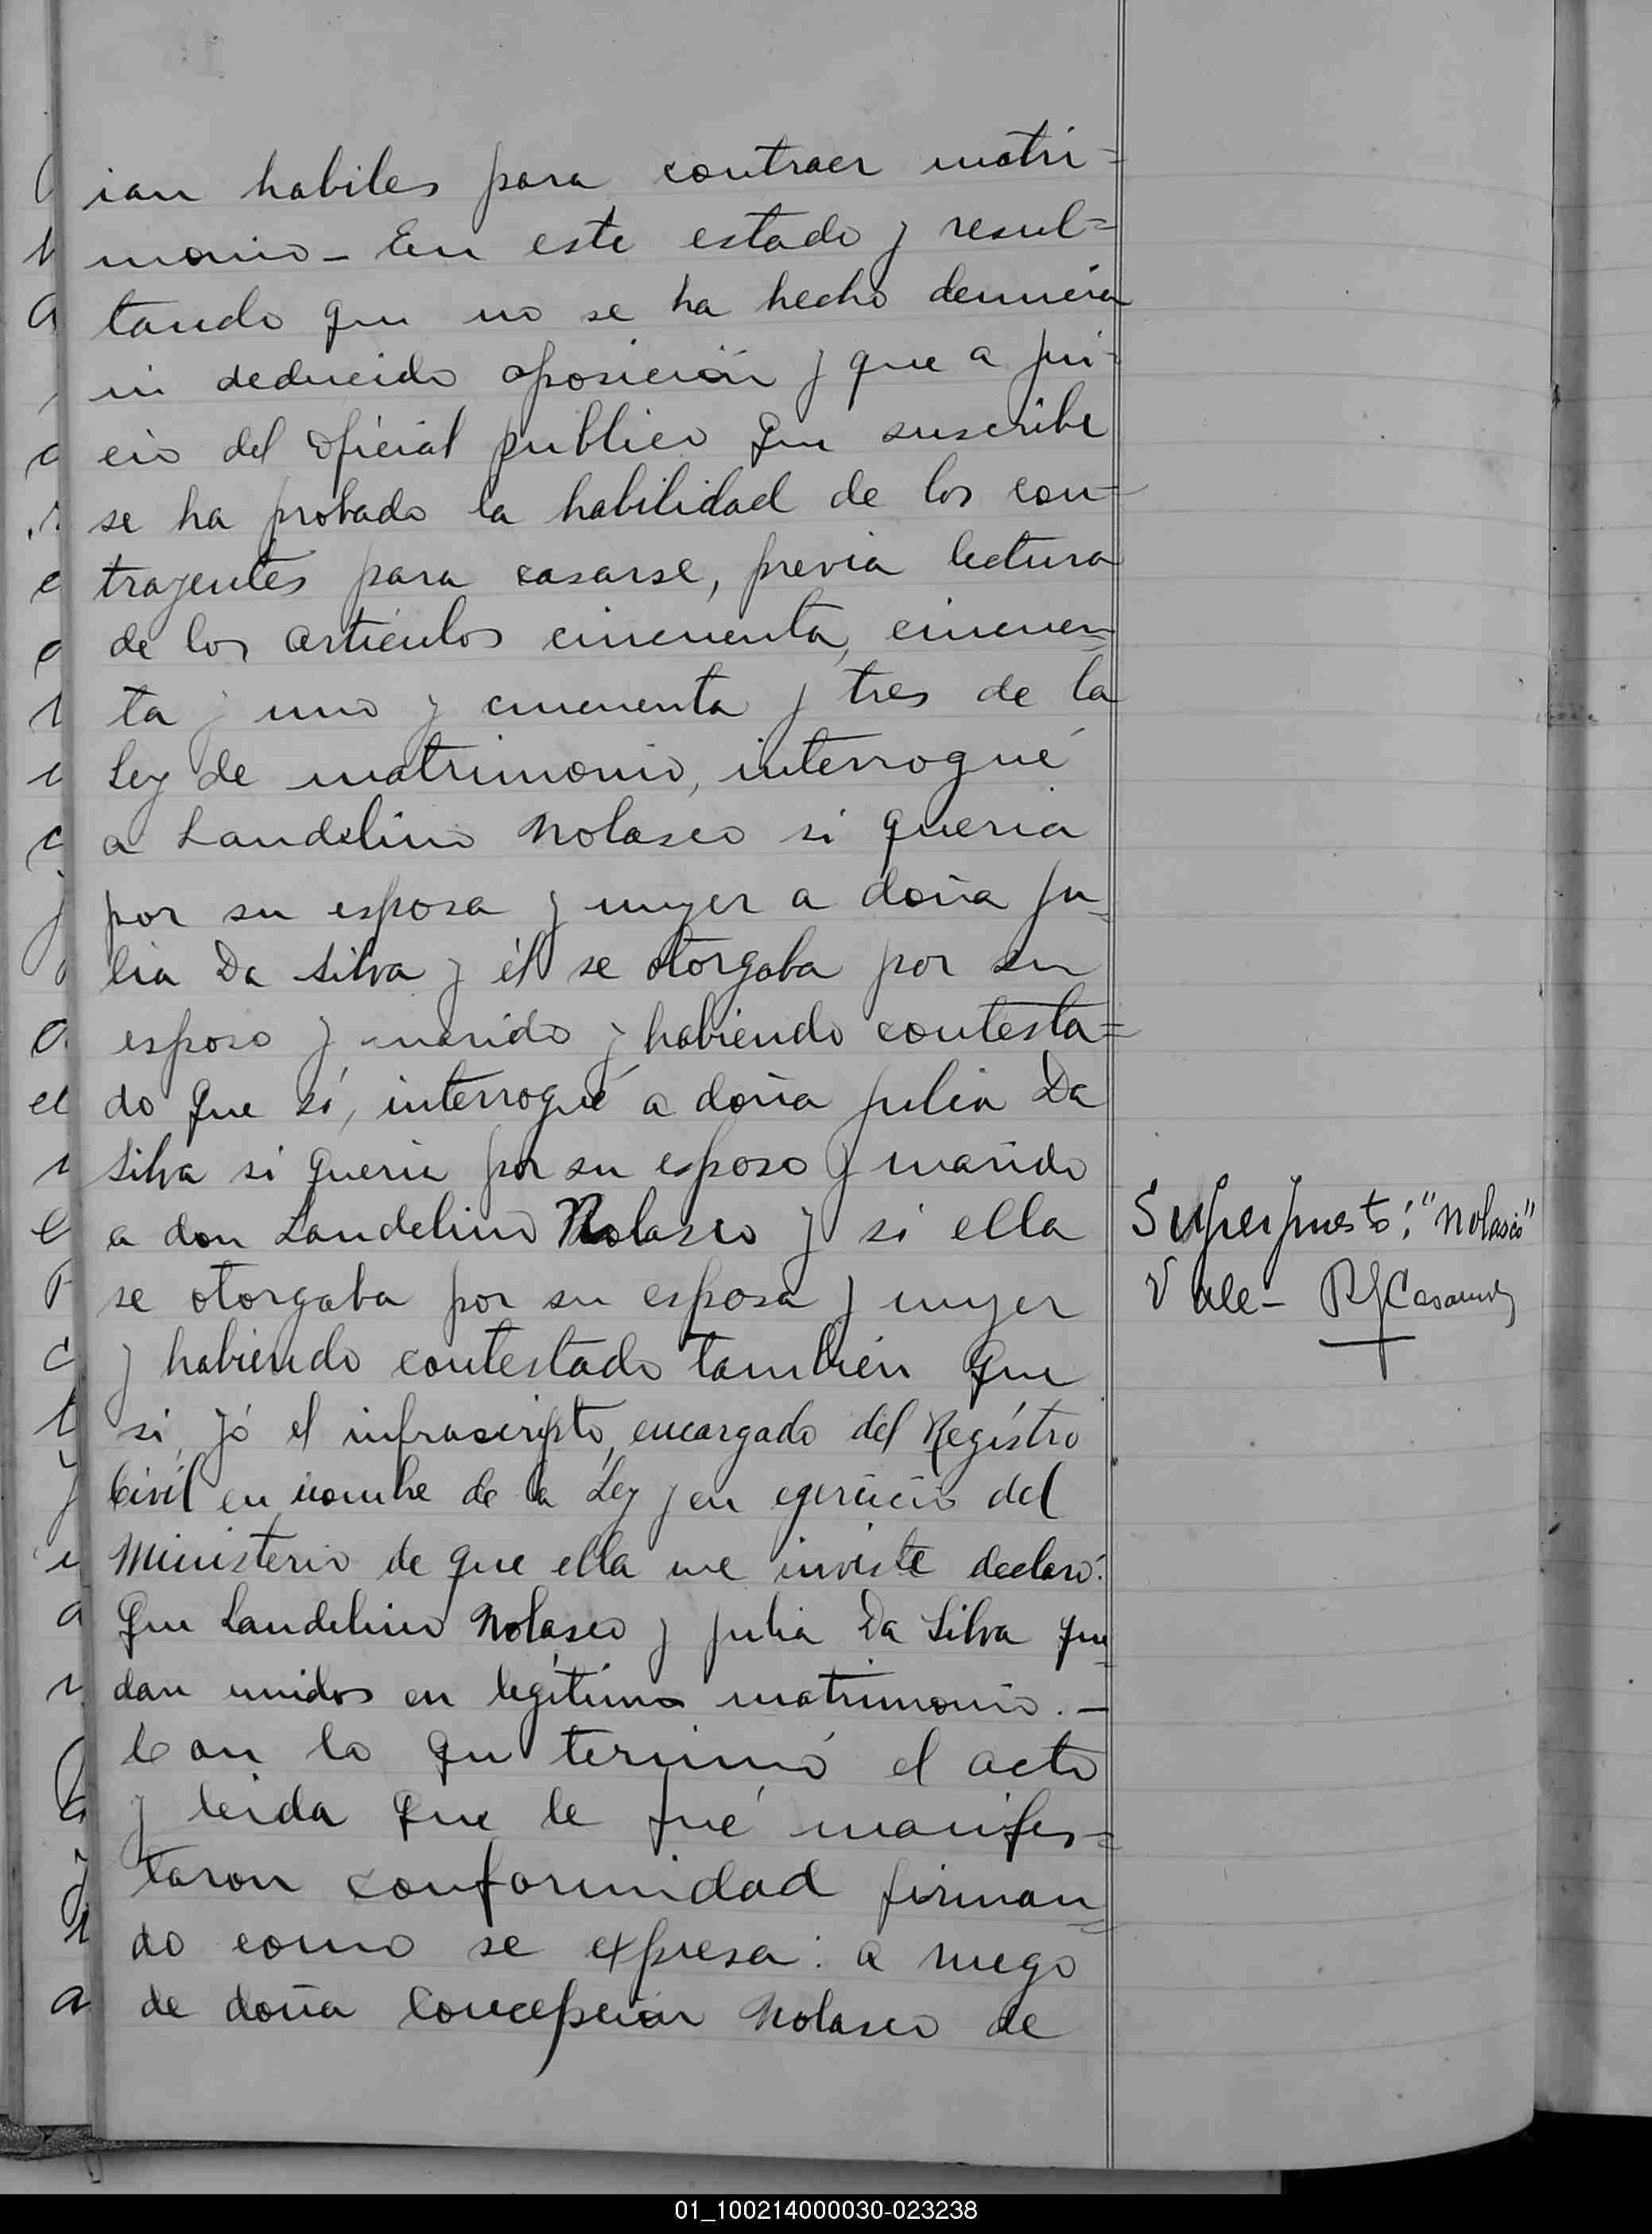 ian habiles para contraer matri=
monio - En este estado y resul=
tando que no se ha hecho denuncia
ni deducido oposición y que a jui-
cio del oficial publico que suscribe
se ha probado la habilidad de los con-
trayentes para casarse, previa lectura
de los articulos cincuenta, cincuen=
ta y uno y cincuenta y tres de la
Ley de matrimonio, interrogué
a Landelino Nolasco si queria
por su esposa y mujer a doña Ju=
lia Da Silva y él se otorgaba por su
esposo y marido y habiendo contesta=
do que sí, interrogué a doña Julia Da
Silva si queria por su esposo y marido
a don Landelino Nolasco y si ella
se otorgaba por su esposa y mujer
y habiendo contestado también que
si, yó el infrascripto, encargado del Regístro
Civil en nombre de la Ley y en ejercicio del
Ministerio de que ella me inviste declaró:
Que Landelino Nolasco y Julia Da Silva que=
dan unidos en legítimo matrimonio. -
Con lo que terminó el acto
y leida que le fué manifes=
taron conformidad firman=
do como se expresa: a ruego
de doña Concepción Nolasco de
Superpuesto: "Nolasco"
Vale -
01_100214000030-023238